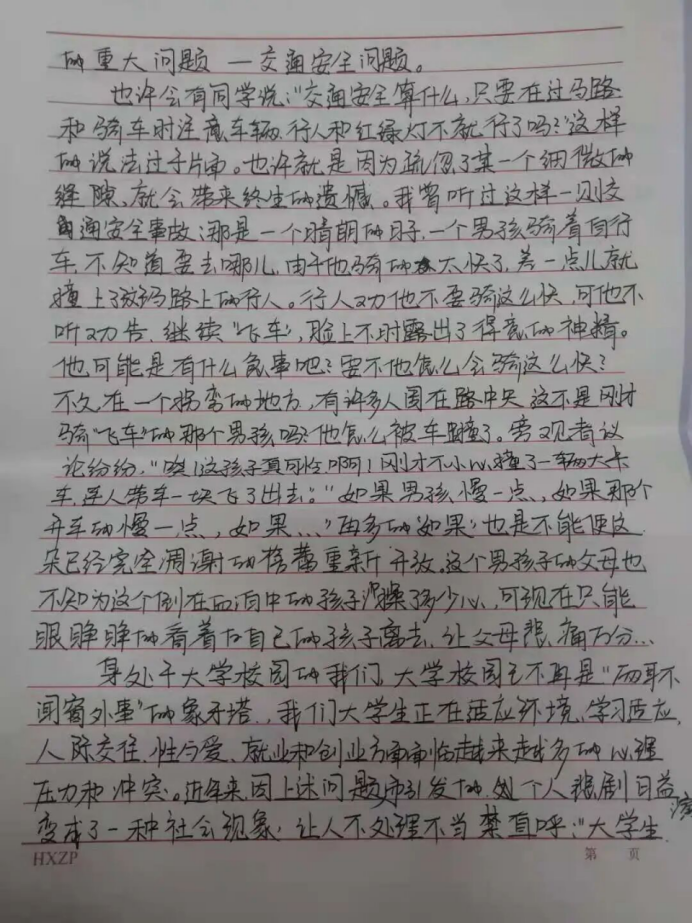 的重大问题—交通安全问题。
也许会有同学说:"交通安全算什么,只要在过马路
和骑车时注意车辆,行人和红绿灯不就行了吗?"这样
的说法过于片面。也许就是因为疏忽了某一个细微的
缝隙、就会带来终生的遗憾。我曾听过这样一则交
通安全事故:那是一个晴朗的日子,一个男孩骑着自行
车,不知道要去哪儿,由于他骑的太快了,差一点儿就
撞上了马路上的行人。行人劝他不要骑这么快,可他不
听劝告,继续"飞车",脸上不时露出了得意的神情。
他可能是有什么急事吧?要不他怎么会骑这么快?
不久,在一个拐弯的地方,有许多人围在路中央,这不是刚才
骑"飞车"的那个男孩吗?他怎么被车撞了。旁观者议
论纷纷,"唉!这孩子真可怜啊!刚才不小心撞了一辆大卡
车,连人带车一块飞了出去。"如果男孩慢一点,如果那个
开车的慢一点,如果…,'再多的'如果'也是不能使这
朵已经完全凋谢的蔷薇重新开放。这个男孩子的父母也
不知为这个倒在血泊中的孩子操了多少心,可现在只能
眼睁睁的看着自己的孩子离去,让父母悲痛万分…
身处于大学校园的我们,大学校园已不再是"两耳不
闻窗外事"的象牙塔,我们大学生正在适应环境、学习适应,
人际交往、性与爱、就业和创业方面面临越来越多的心理
压力和冲突。近年来,因上述问题而引发的,个人悲剧日益
变成了一种社会现象,让人不处理不当禁直呼:"大学生
HXZP 第 页